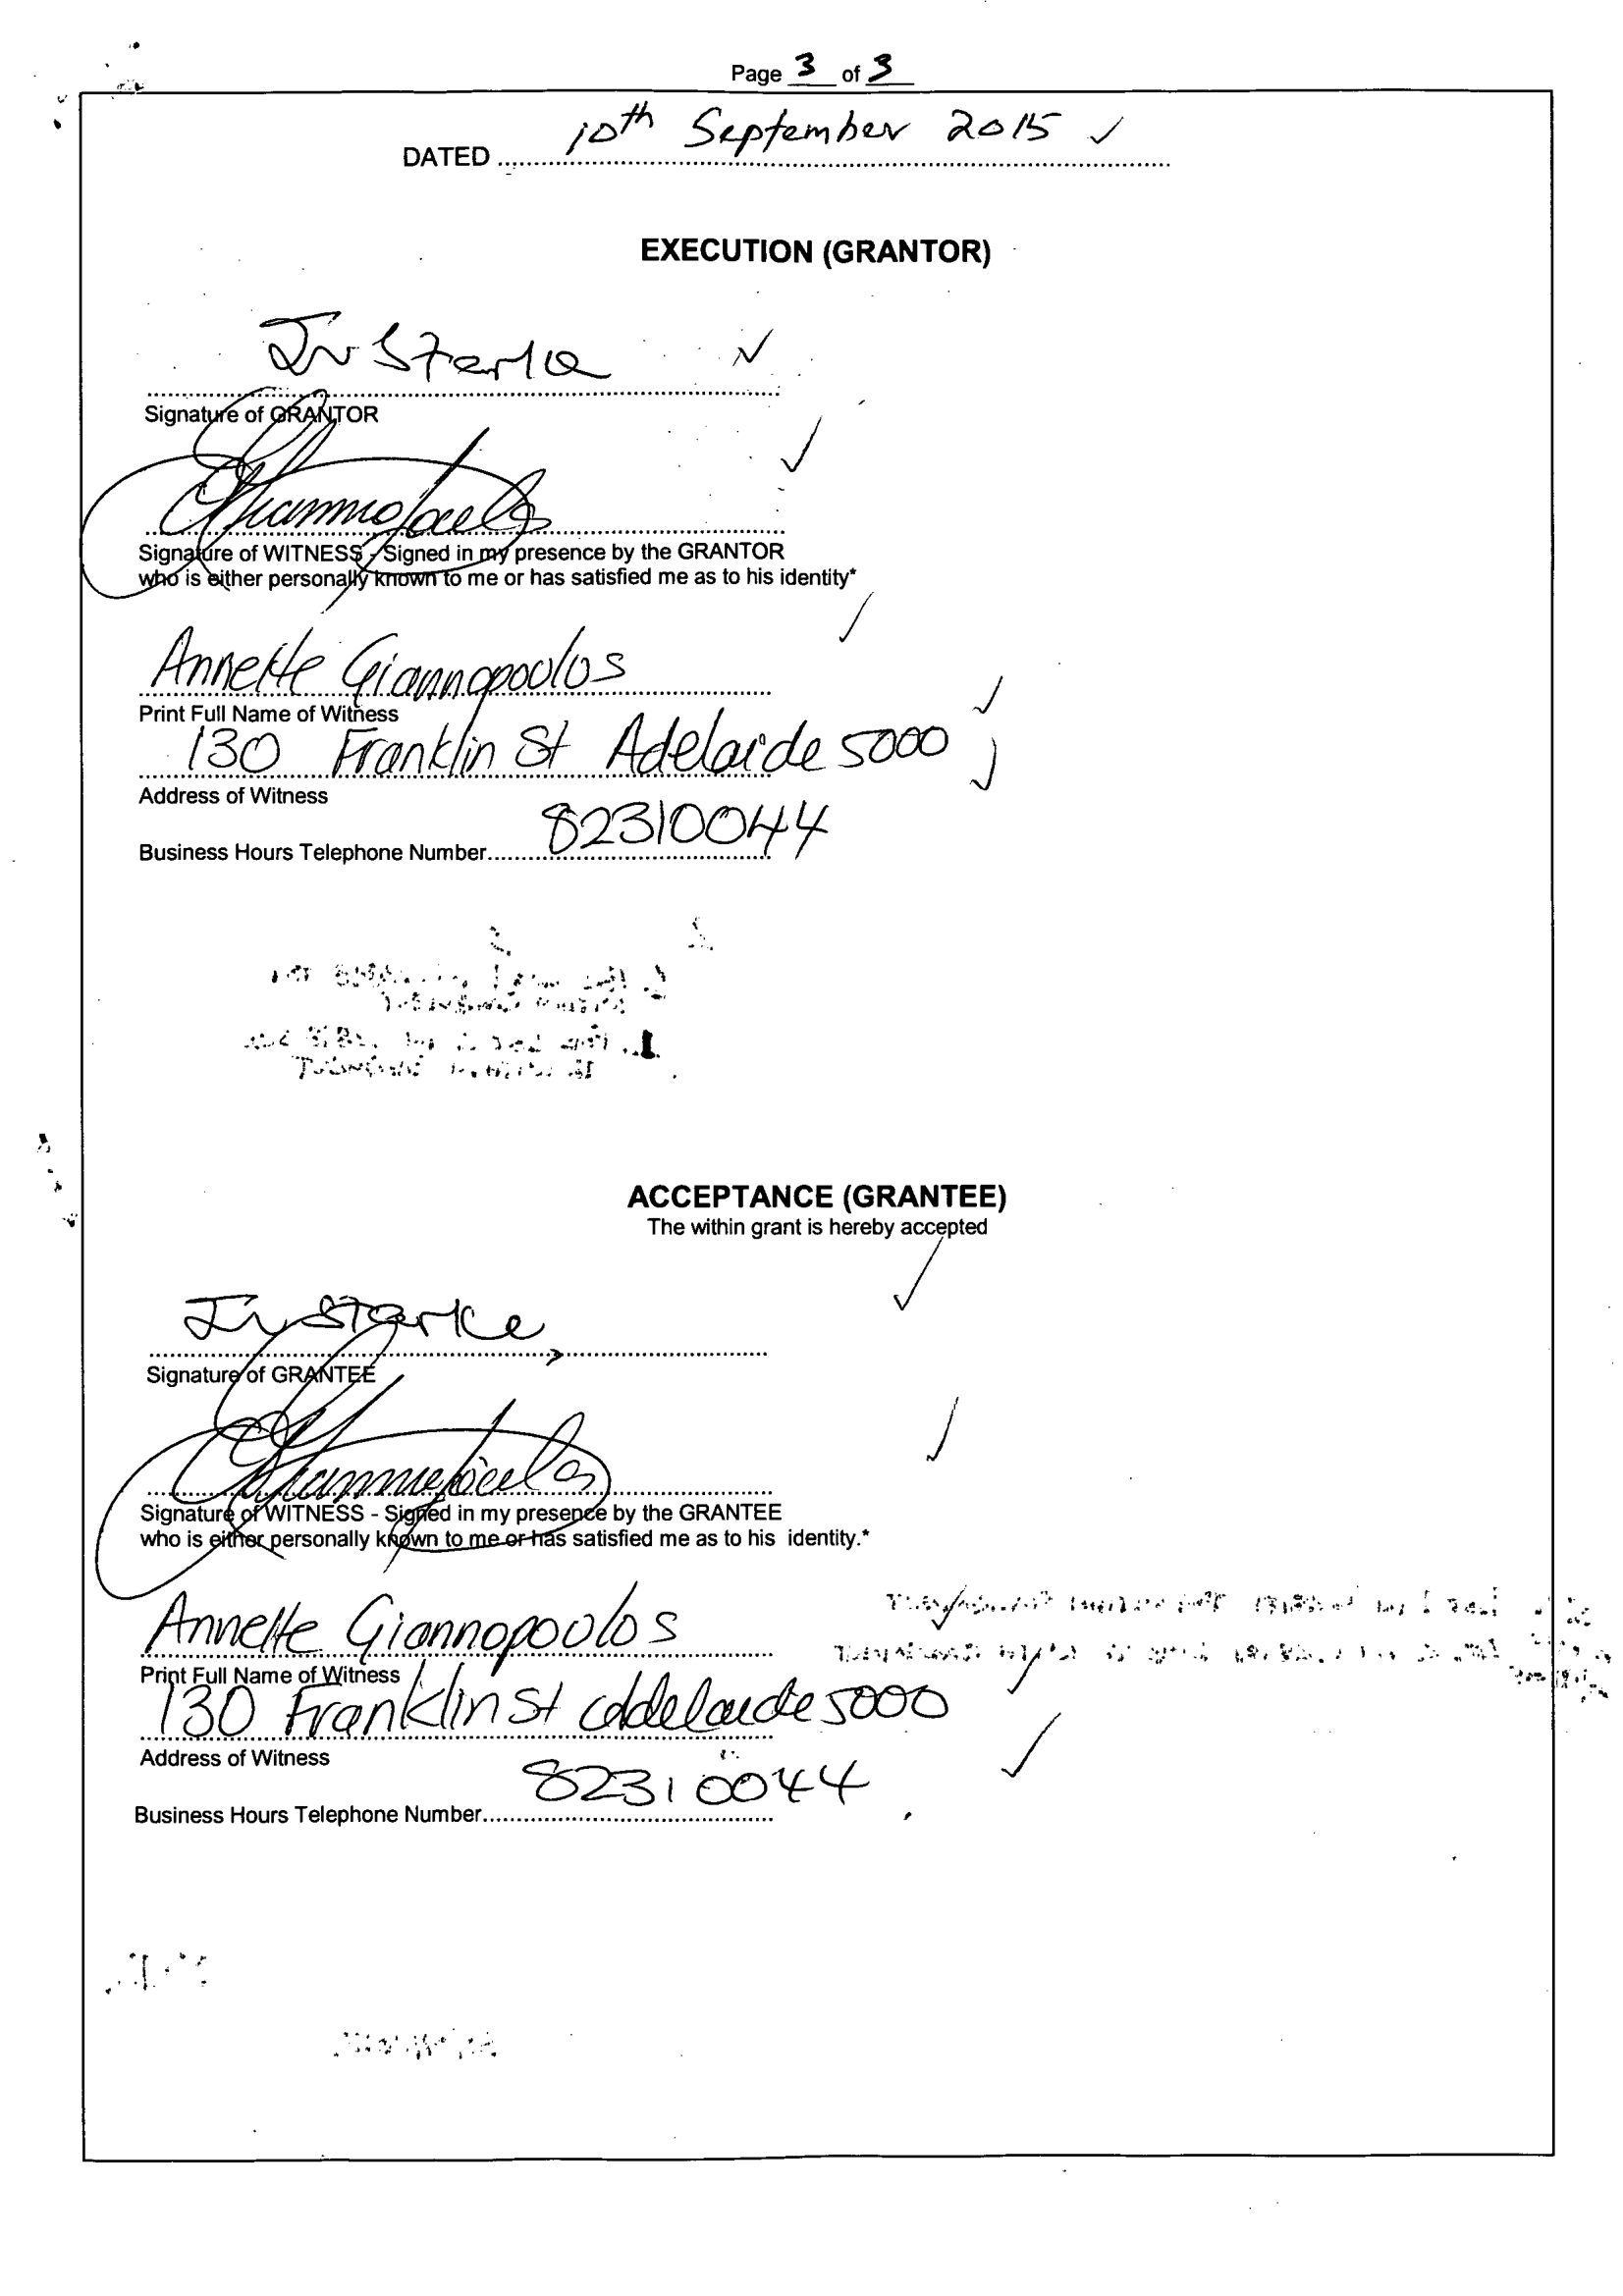 Page 3 of 3
DATED 10th September 2015
EXECUTION (GRANTOR)
Signature of GRANTOR
Signature of WITNESS - Signed in my presence by the GRANTOR
who is either personally known to me or has satisfied me as to his identity*
Annette Giannopoulos
Print Full Name of Witness
130 Franklin St Adelaide 5000
Address of Witness
Business Hours Telephone Number 82310044
ACCEPTANCE (GRANTEE)
The within grant is hereby accepted
Signature of GRANTEE
Signature of WITNESS - Signed in my presence by the GRANTEE
who is either personally known to me or has satisfied me as to his identity.*
Annette Giannopoulos
Print Full Name of Witness
130 Franklin St Adelaide 5000
Address of Witness
Business Hours Telephone Number 82310044